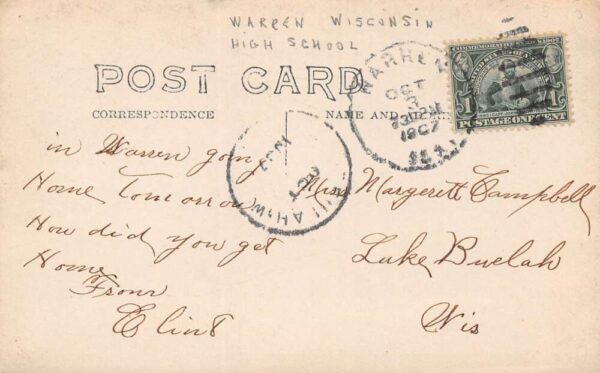 WARREN WISCONSIN
HIGH SCHOOL
POST CARD
CORRESPONDENCE
NAME AND
WARREN
OCT
3
PM
1907
ILL.
COMMEMORATIVE SERIES 1907
1 1
POSTAGE ONE CENT
OCT
1907
in Warren going
Home Tomorrow
How did you get
Home
From
Clint
Miss Margerett Campbell
Luke Buelah
Wis